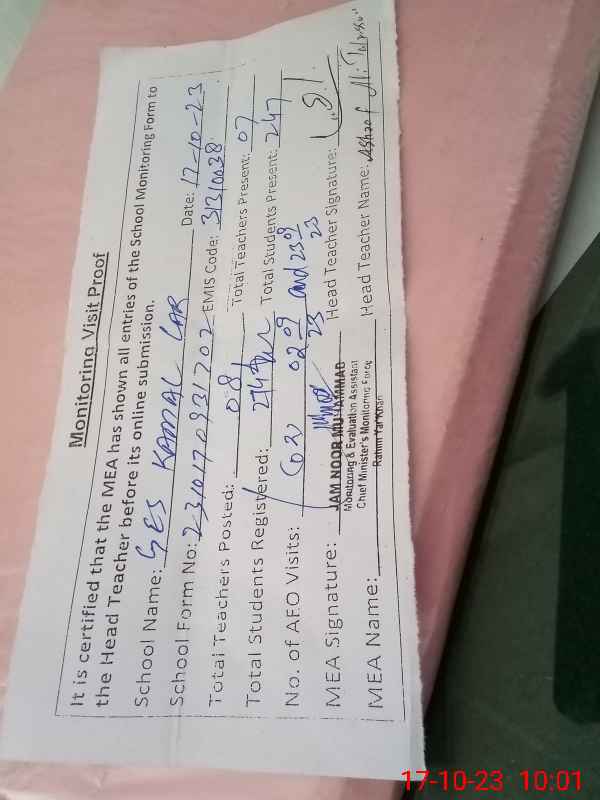 Monitoring Visit Proof
It is certified that the MEA has shown all entries of the School Monitoring Form to
the Head Teacher before its online submission.
School Name: GES KAMAL LAR Date: 17-10-23
School Form No: 2310170931702 EMIS Code: 31310038
Total Teachers Posted: 08 Total Teachers Present: 07
Total Students Registered: 274 Total Students Present: 247
No. of AEO Visits: 02 02 09 23 and 23 09 23
MEA Signature: Head Teacher Signature:
JAM NOOR MUHAMMAD
Monitoring & Evaluation Assistant
Chief Minister's Monitoring Force
Rahim Yar Khan
MEA Name: Head Teacher Name: Ashraf Ali
17-10-23 10:01